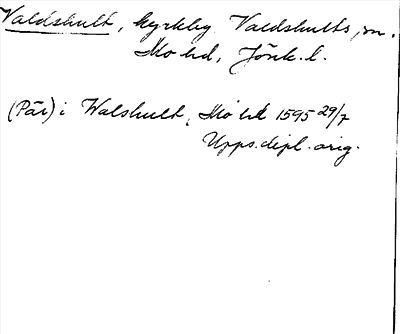 Valdshult, kyrkby Valdshults sn.
Mo hd, Jönk. l.
(Pär) i Walshult, Mo hd 1595 29/7
Upps. dipl. orig.